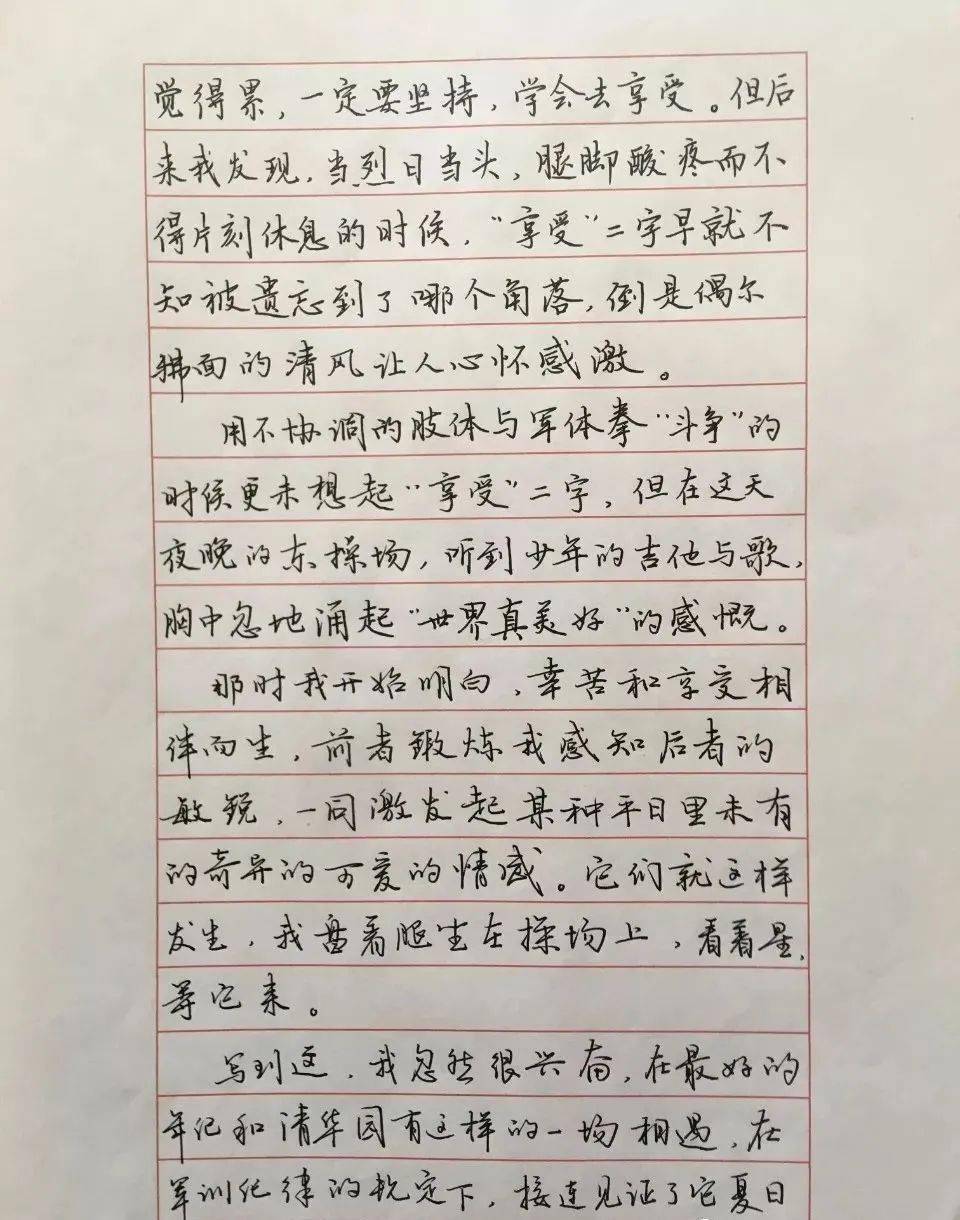 觉得累，一定要坚持，学会去享受。但后
来我发现，当烈日当头，腿脚酸疼而不
得片刻休息的时候，“享受”二字早就不
知被遗忘到了哪个角落，倒是偶尔
拂面的清风让人心怀感激。
用不协调的肢体与军体拳“斗争”的
时候更未想起“享受”二字，但在这天
夜晚的东操场，听到少年的吉他与歌，
胸中忽地涌起“世界真美好”的感慨。
那时我开始明白，辛苦和享受相
伴而生，前者锻炼我感知后者的
敏锐，一同激发起某种平日里未有
的奇异的可爱的情感。它们就这样
发生，我盘着腿坐在操场上，看着星，
等它来。
写到这，我忽然很兴奋，在最好的
年纪和清华园有这样的一场相遇，在
军训纪律的规定下，接连见证了它夏日